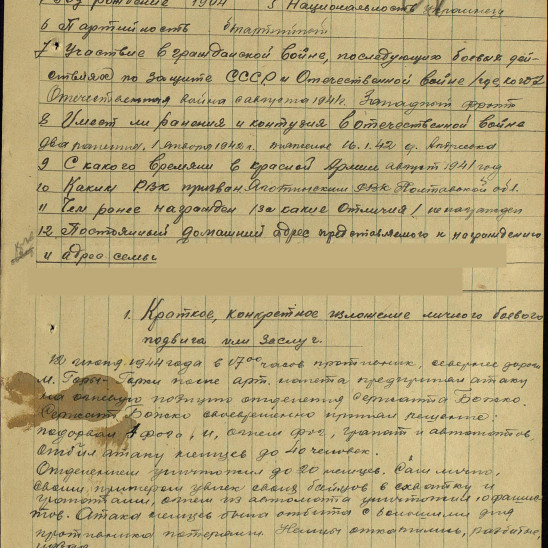 рождение 1904 5 Национальность украинец
6 Партийность беспартийный
7 Участвие в гражданской войне, последующих боевых дей-
ствиях по защите СССР и Отечественной войне /где, когда/
Отечественная война с августа 1941г. Западный фронт
8 Имеет ли ранения и контузия в отечественной войне
два ранения, 1 января 1942г. 16.1.42 д. Андреевка
9 С какого времяни в красной Армии август 1941 год
10 Каким РВК призван Яготинским РВК Полтавской обл.
11 Чем ранее награжден /за какие Отличия/ не награжден
12 Постоянный домашний адрес представляемого к награждению
и адрес семьи
1. Краткое, конкретное изложение личного боевого
подвига или заслуг.
июня 1944 года в 17.00 часов противник, севернее дороги
м. Горы-Горки после арт. налета предпринял атаку
на огневую позицию отделения сержанта Божко.
Сержант Божко своевременно принял решение:
подорвал 4 фога, и, огнем фог, гранат и автоматов,
отбил атаку немцев до 40 человек.
Отделением уничтожил до 20 немцев. Сам лично,
своим примером увлек своих бойцов в схватку и
гранатами, огнем из автомата уничтожил 10 фашис-
тов. Атака немцев была отбита с большими для
противника потерями. Немцы откатились,